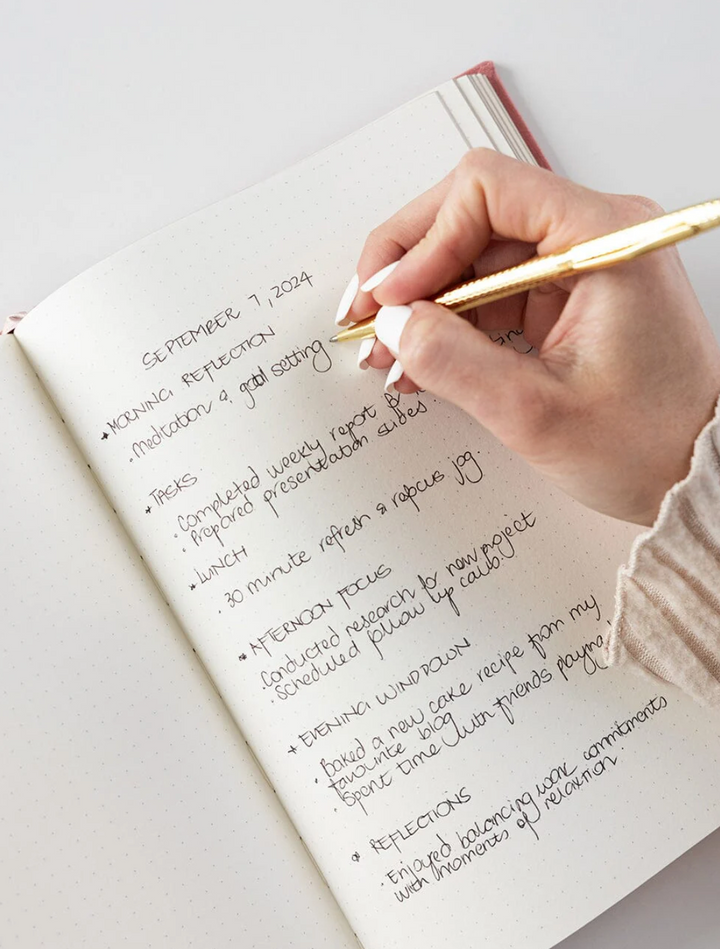 SEPTEMBER 7, 2024
* MORNING REFLECTION
• Meditation & goal setting
* TASKS
• Completed weekly report
• Prepared presentation slides
* LUNCH
• 30 minute refresh & refocus jog.
* AFTERNOON FOCUS
• Conducted research for new project
• Scheduled follow up calls.
* EVENING WINDDOWN
• Baked a new cake recipe from my
favourite blog
• Spent time with friends
* REFLECTIONS
• Enjoyed balancing work commitments
with moments of relaxtion.